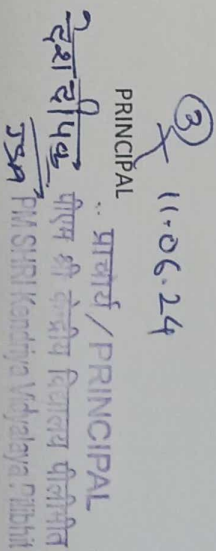 ③ 11.06.24
PRINCIPAL
प्राचार्य / PRINCIPAL
पीएम श्री केन्द्रीय विद्यालय पीलीभीत
PM SHRI Kendriya Vidyalaya Pilibhit
देश दीपक
JSA